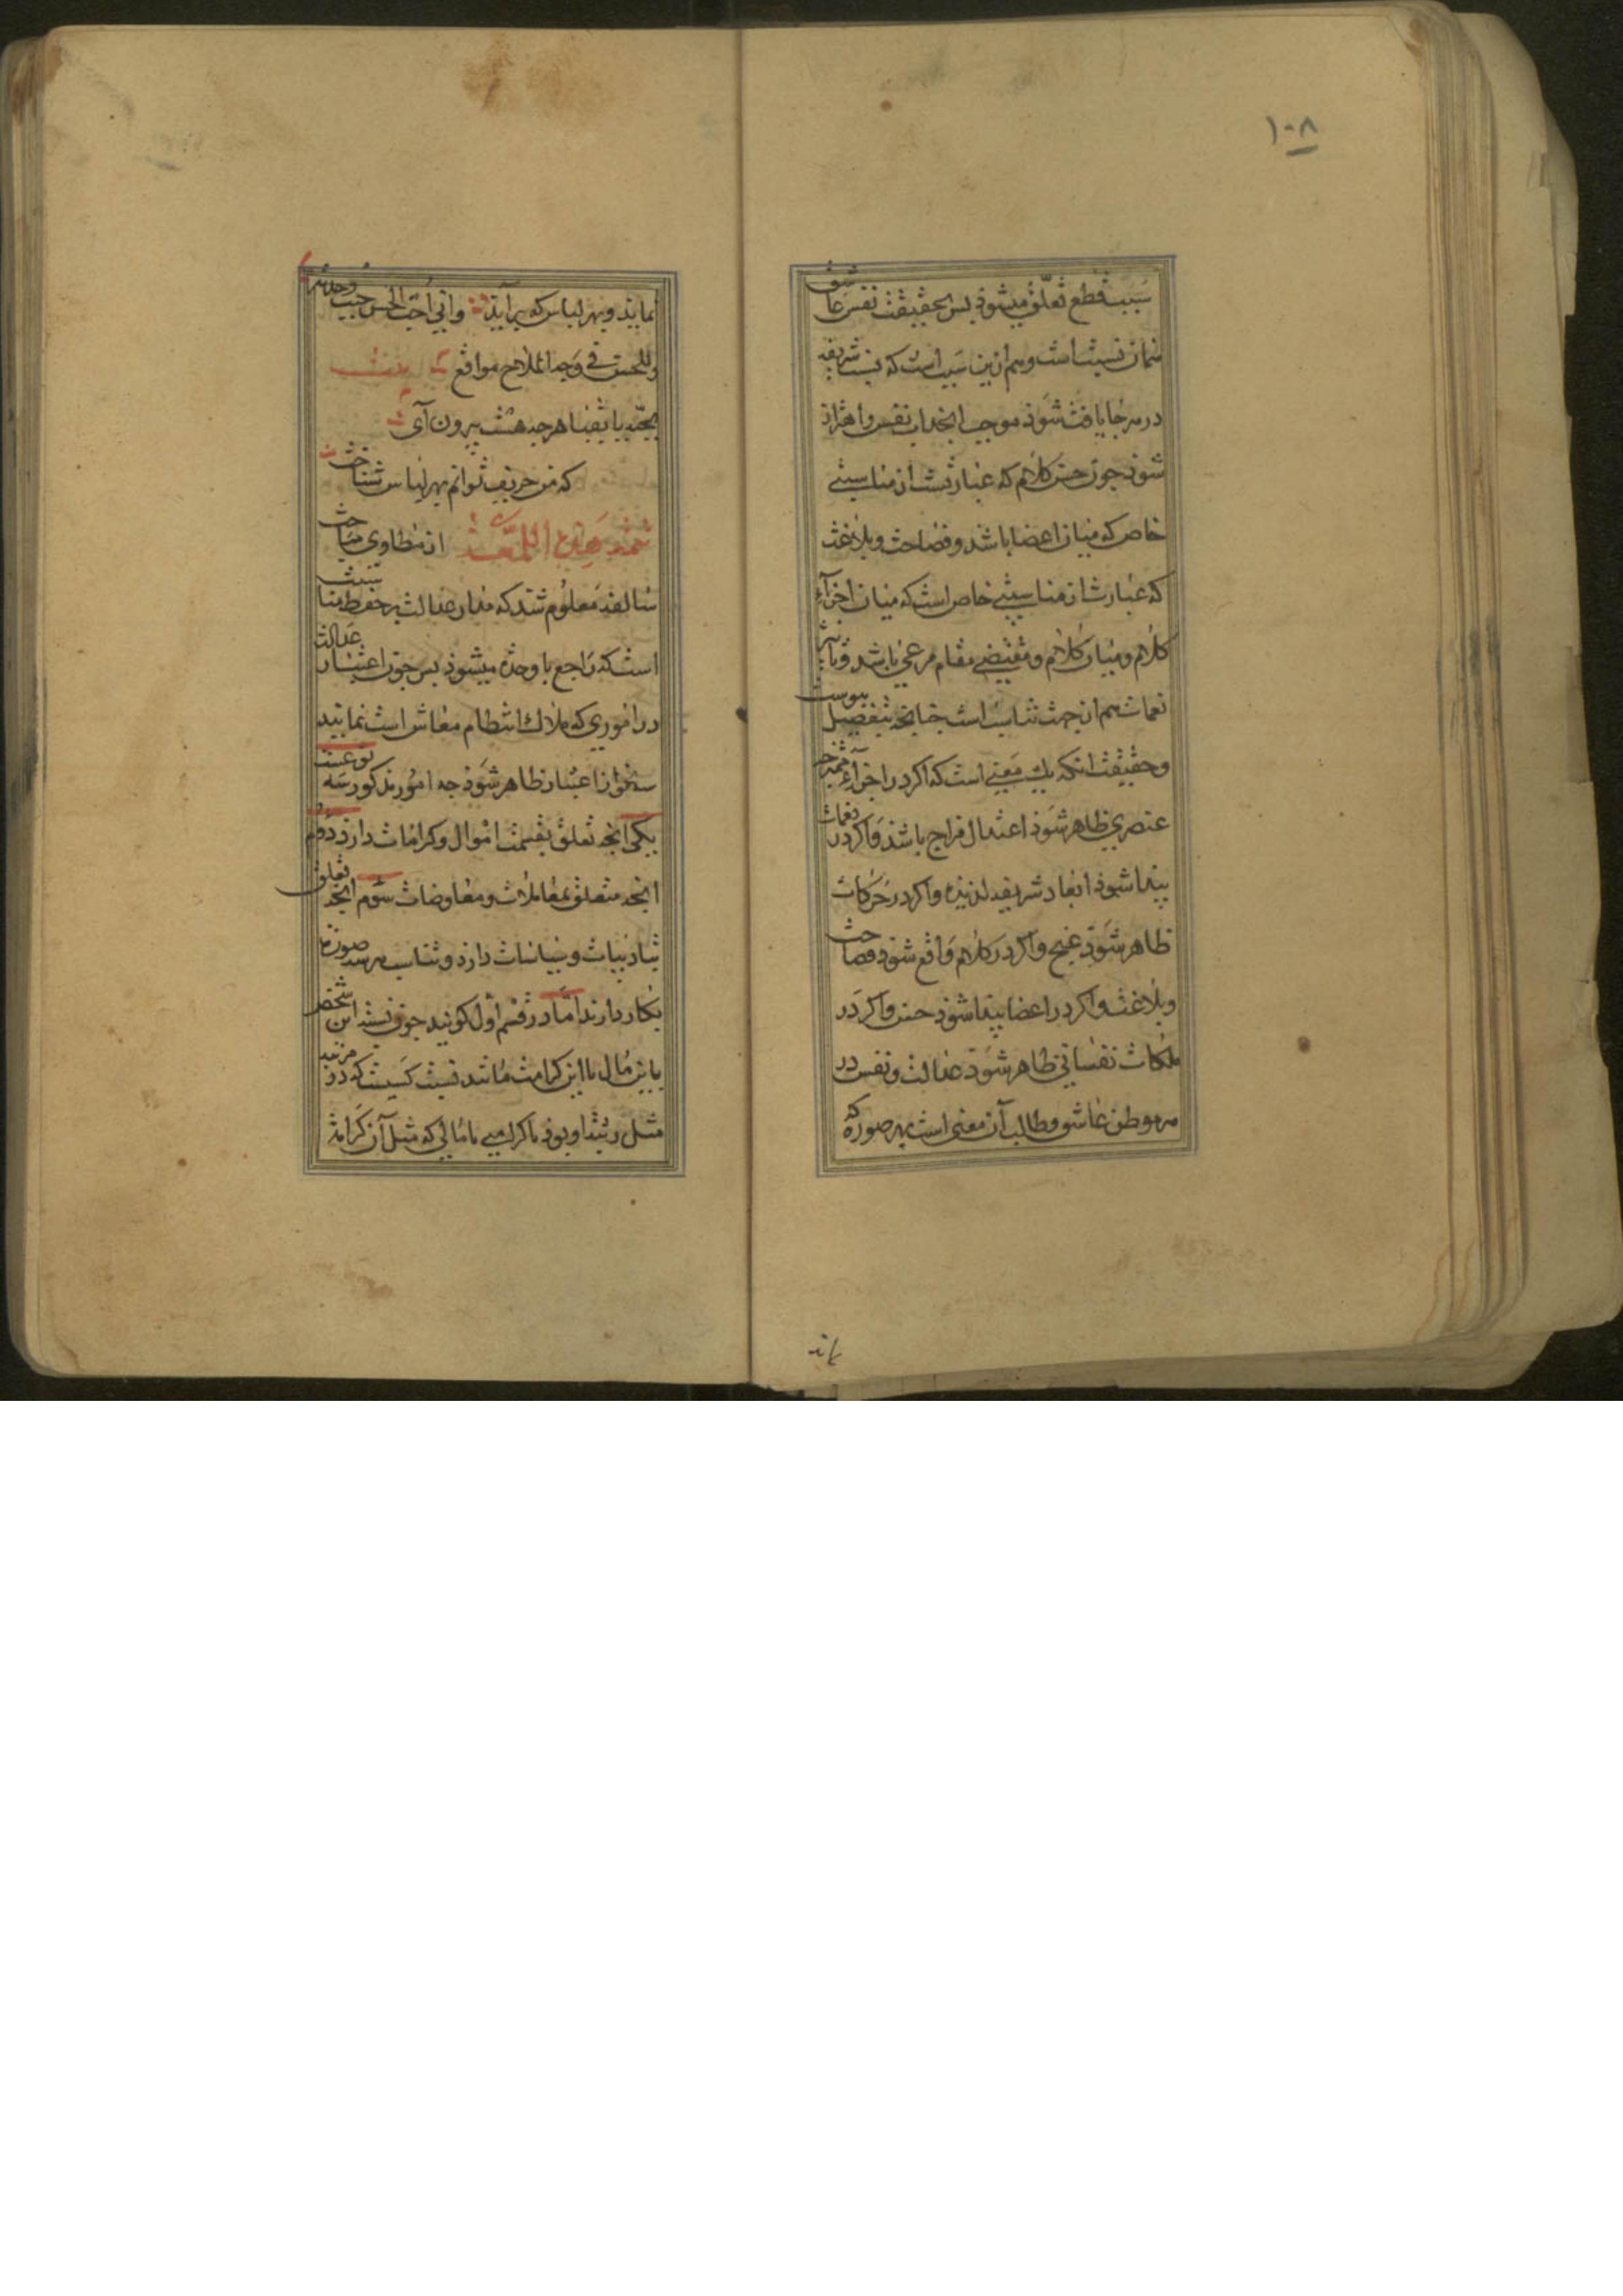 ۱۰۸
سبب قطع تعلّق میشوذ بس بحقیقت نفس عاشق
همان نسبت است و هم ازین سبب است که نسبت شریفه
در هرجا یافت شوذ موجب انجذاب نفس و اهتزاز
شوذ جون حسن کلام که عبارتست از مناسبتی
خاص که میان اعضا باشد و فصاحت و بلاغت
که عبارت از مناسبتی خاص است که میان اجزآء
کلام و میان کلام و مقتضی مقام مرعی باشد و تاثیر
نغمات هم از جهت تناسب است جنانجه بتفصیل بیوست
و حقیقت انکه یك معنی است که اکر در اجزآء ممتزجه
عنصری ظاهر شوذ اعتدال مزاج باشد و اکر در نغمات
بیدا شوذ ابعاد شریفه لذیذه و اکر در حرکات
ظاهر شوذ غنج و اکر در کلام واقع شوذ فصاحت
و بلاغت و اکر در اعضا بیدا شوذ حسن و اکر در
ملکات نفسانی ظاهر شوذ عدالت و نفس در
هر موطن عاشق و طالب آن معنی است بهر صورة که
نماید
نماید و بهر لباس که برآید وانی احب الحسن حیث وجدته
وللحسن فی وجه الملاح مواقع بیت
بجبّه یا بقبا هرجه هست بیرون آی
که من حریف توانم بهر لباس شناخت
تتمة هذه اللمعة از مطاوی مباحث
سالفه معلوم شد که مدار عدالت بر حفظ مناسبت
است که راجع با وحدة میشوذ بس جون اعتبار عدالت
در اموری که ملاك انتظام معاش است نمایید
سه نوع اعتبار ظاهر شوذ جه امور مذکور سه نوعست
یکی انجه تعلق بقسمت اموال و کرامات دارذ دوم
انجه متعلق بمعاملات و معاوضات سوم انجه تعلق
بتادیبات و سیاسات دارذ و تناسب در هر سه صورة
بکار دارند امّا در قسم اول کویند جون نسبت این شخص
باین مال یا این کرامت مانند نسبت کسیست که در مرتبه
مثل رتبة او بوذ با کرامتی یا مالی که مثل آن کرامة